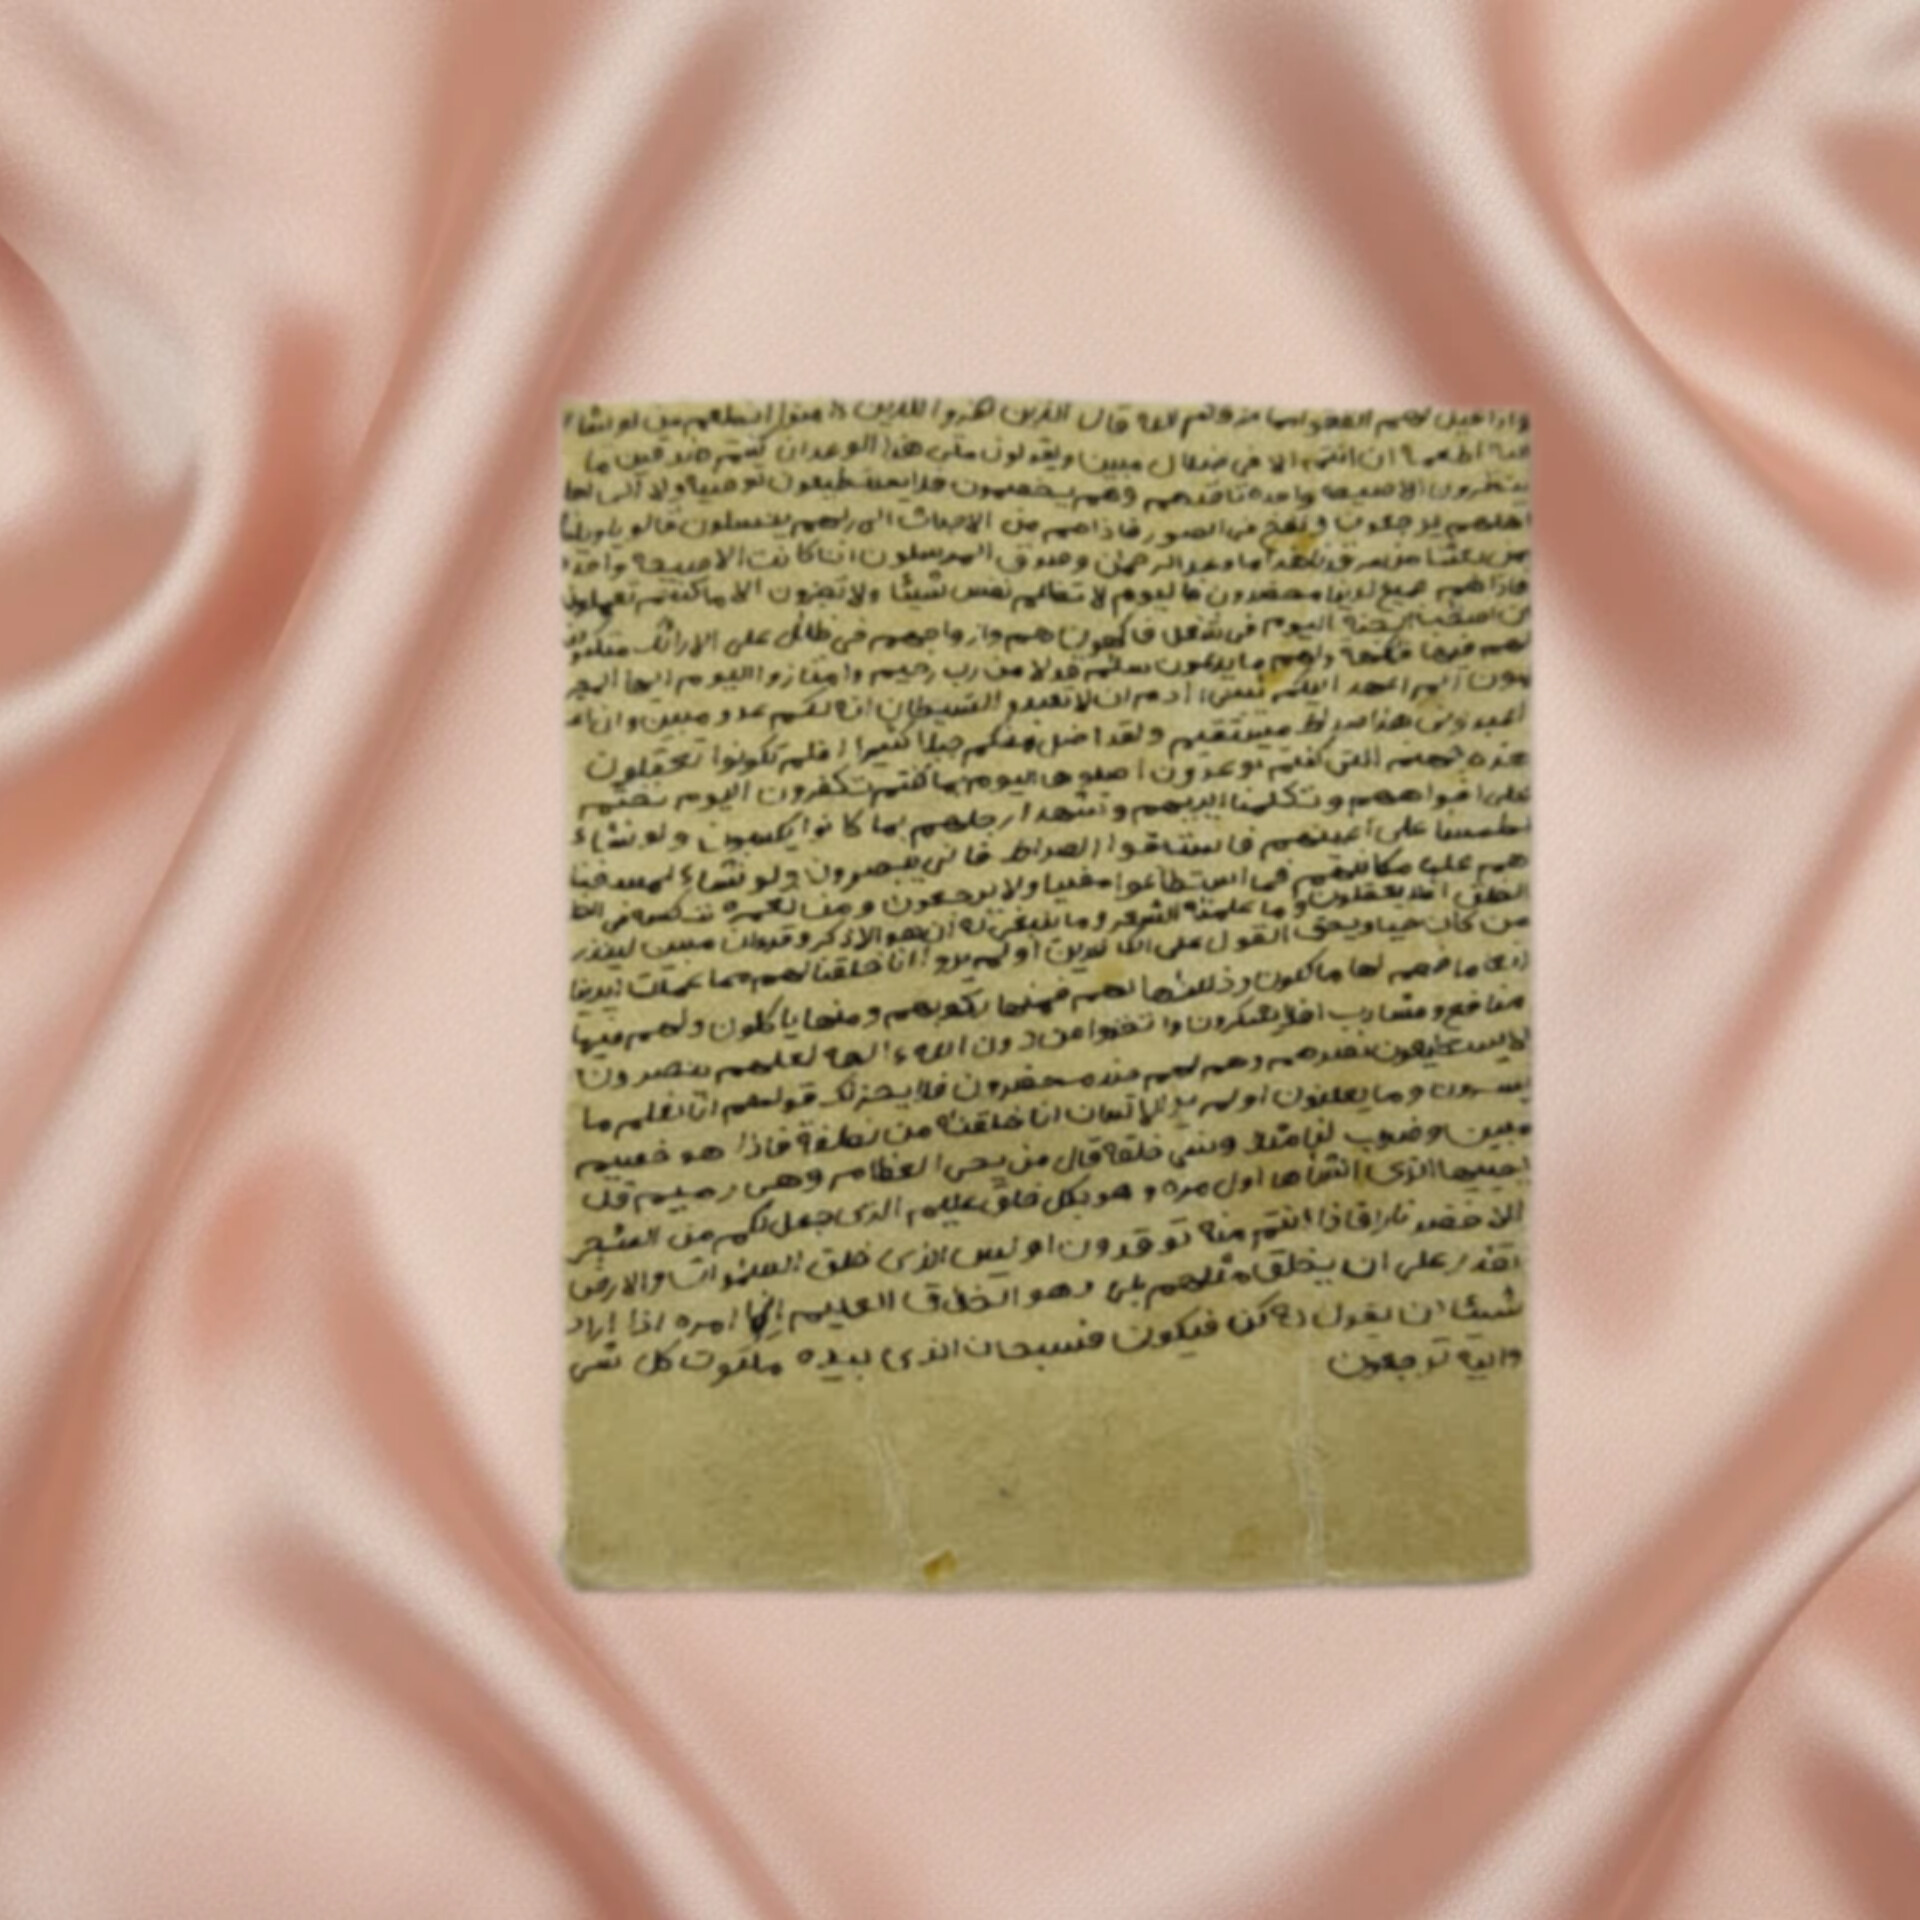 واذا قيل لهم انفقوا مما رزقكم الله قال الذين كفروا للذين ءامنوا انطعم من لو يشاء
الله اطعمه ان انتم الا في ضلال مبين ويقولون متى هذا الوعد ان كنتم صدقين ما
ينظرون الا صيحة واحدة تاخذهم وهم يخصمون فلا يستطيعون توصية ولا الى
اهلهم يرجعون ونفخ في الصور فاذا هم من الاجداث الى ربهم ينسلون قالو ياويلنا
من بعثنا من مرقدنا هذا ما وعد الرحمن وصدق المرسلون ان كانت الا صيحة واحدة
فاذا هم جميع لدينا محضرون فاليوم لا تظلم نفس شيئا ولا تجزون الا ما كنتم تعملون
ان اصحب الجنة اليوم في شغل فاكهون هم وازواجهم في ظلل على الارائك متكئون
لهم فيها فكهة ولهم ما يدعون سلم قولا من رب رحيم وامتازوا اليوم ايها المجر
مون الم اعهد اليكم يبنى ادم ان لا تعبدو الشيطان انه لكم عدو مبين وان
اعبدوني هذا صراط مستقيم ولقد اضل منكم جبلا كثيرا افلم تكونوا تعقلون
هذه جهنم التي كنتم توعدون اصلوها اليوم بما كنتم تكفرون اليوم نختم
على افواههم وتكلمنا ايديهم وتشهد ارجلهم بما كانوا يكسبون ولو نشاء
لطمسنا على اعينهم فاستبقوا الصراط فانى يبصرون ولو نشاء لمسخنا
هم على مكانتهم فما استطاعوا مضيا ولا يرجعون ومن نعمره ننكسه في
الخلق افلا يعقلون وما علمنه الشعر وما ينبغي له ان هو الا ذكر وقرءان مبين لينذر
من كان حيا ويحق القول على الكافرين اولم يروا انا خلقنا لهم مما عملت ايدينا
انعاما فهم لها مالكون وذللنها لهم فمنها ركوبهم ومنها ياكلون ولهم فيها
منافع ومشارب افلا يشكرون واتخذوا من دون الله ءالهة لعلهم ينصرون
لا يستطيعون نصرهم وهم لهم جند محضرون فلا يحزنك قولهم انا نعلم ما
يسرون وما يعلنون اولم ير الانسان انا خلقنه من نطفة فاذا هو خصيم
مبين وضرب لنا مثلا ونسي خلقه قال من يحي العظام وهي رميم قل
يحييها الذي انشاها اول مرة وهو بكل خلق عليم الذي جعل لكم من الشجر
الاخضر نارا فاذا انتم منه توقدون اوليس الذي خلق السموات والارض
بقدر على ان يخلق مثلهم بلى وهو الخلاق العليم انما امره اذا اراد
شيئا ان يقول له كن فيكون فسبحان الذي بيده ملكوت كل شي
واليه ترجعون